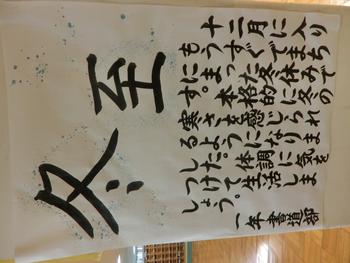 冬至
十二月に入り
もうすぐでまち
にまった冬休みで
す。本格的に冬の
寒さを感じられ
るようになりま
した。体調に気を
つけて生活しま
しょう。
一年書道部